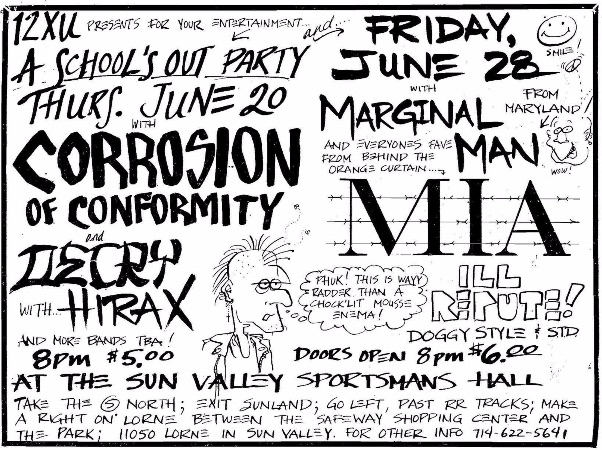 12XU PRESENTS FOR YOUR ENTERTAINMENT...
A SCHOOL'S OUT PARTY
THURS. JUNE 20
WITH
CORROSION
OF CONFORMITY
and
DECRY
WITH... HIRAX
AND MORE BANDS TBA!
8pm $5.00
and...
FRIDAY,
JUNE 28
SMILE!
WITH
MARGINAL
MAN
FROM
MARYLAND!
WOW!
AND EVERYONES FAVE
FROM BEHIND THE
ORANGE CURTAIN...
MIA
PHUK! THIS IS WAYY
RADDER THAN A
CHOCK'LIT MOUSSE
ENEMA!
ILL
REPUTE!
DOGGY STYLE & STD
DOORS OPEN 8pm $6.00
AT THE SUN VALLEY SPORTSMANS HALL
TAKE THE 5 NORTH; EXIT SUNLAND; GO LEFT, PAST RR TRACKS; MAKE
A RIGHT ON LORNE BETWEEN THE SAFEWAY SHOPPING CENTER AND
THE PARK; 11050 LORNE IN SUN VALLEY. FOR OTHER INFO 714-622-5641